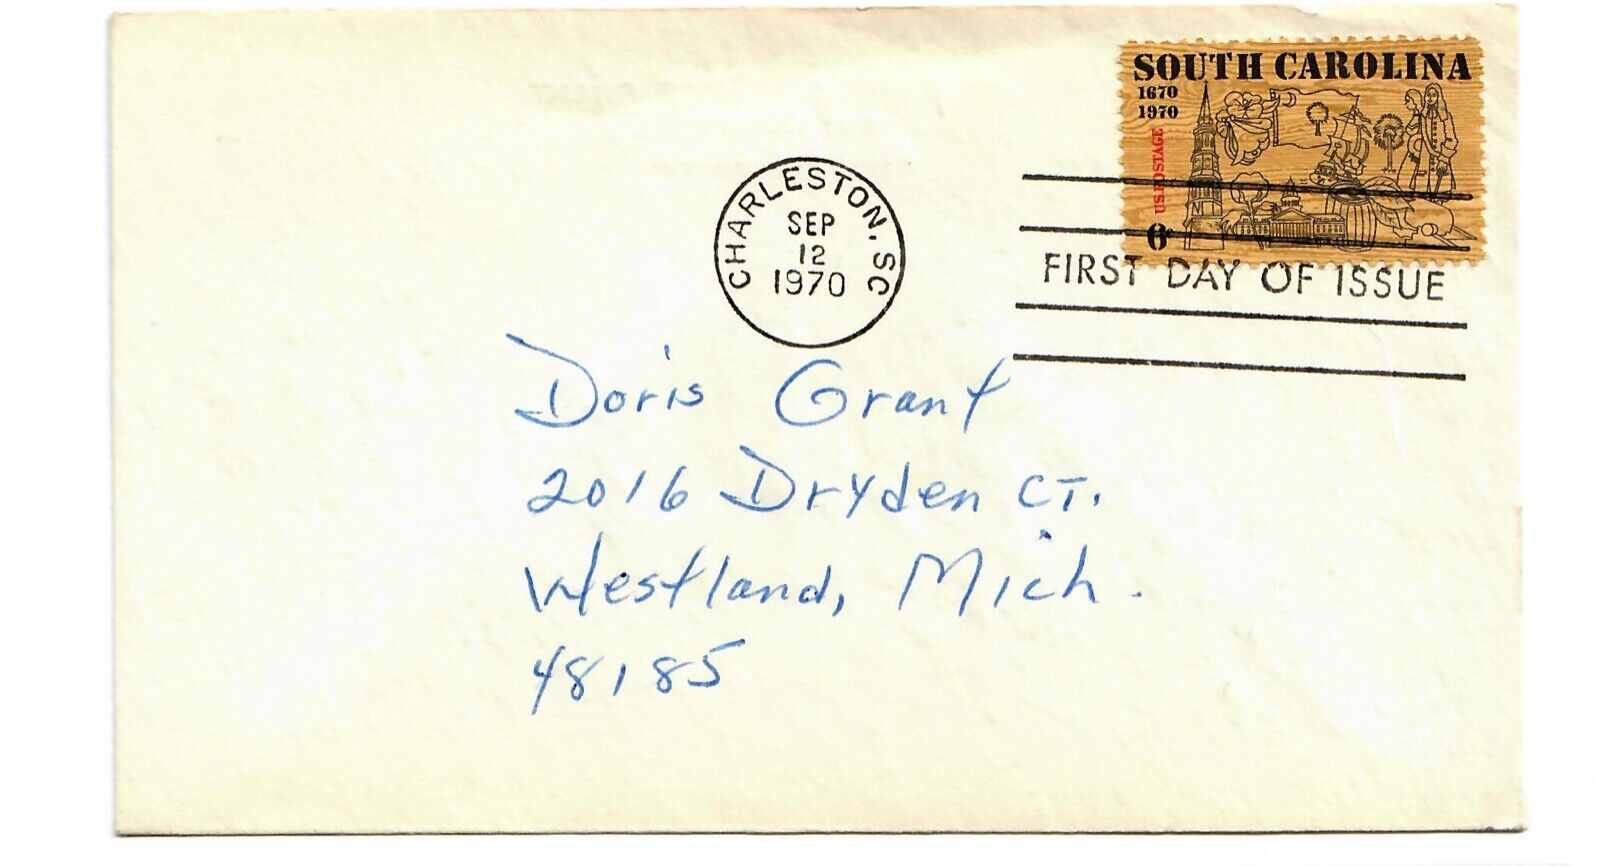 SOUTH CAROLINA
1670
1970
U.S. POSTAGE
6¢
CHARLESTON, SC
SEP
12
1970
FIRST DAY OF ISSUE
Doris Grant
2016 Dryden CT.
Westland, Mich.
48185